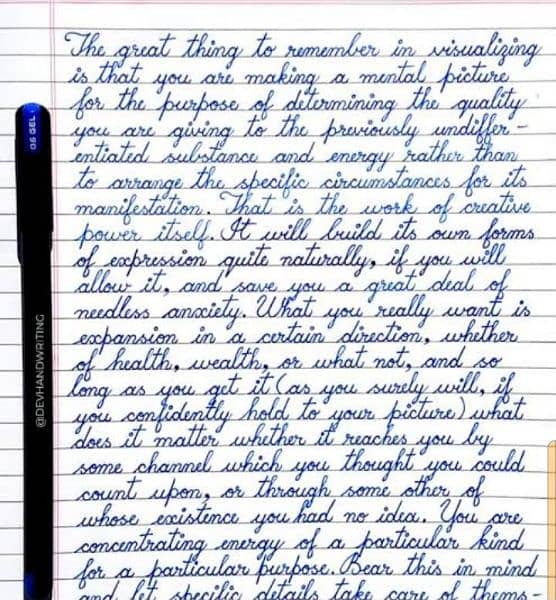 The great thing to remember in visualizing
is that you are making a mental picture
for the purpose of determining the quality
you are giving to the previously undiffer-
entiated substance and energy rather than
to arrange the specific circumstances for its
manifestation. That is the work of creative
power itself. It will build its own forms
of expression quite naturally, if you will
allow it, and save you a great deal of
needless anxiety. What you really want is
expansion in a certain direction, whether
of health, wealth, or what not, and so
long as you get it (as you surely will, if
you confidently hold to your picture) what
does it matter whether it reaches you by
some channel which you thought you could
count upon, or through some other of
whose existence you had no idea. You are
concentrating energy of a particular kind
for a particular purpose. Bear this in mind
and let specific details take care of thems-
06 GEL
@DEVHANDWRITING